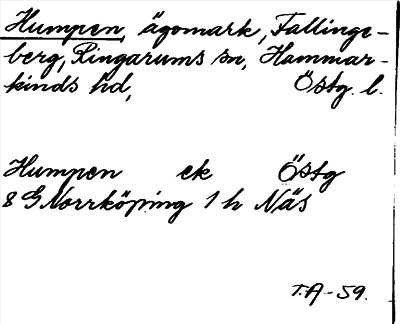 Humpen, ägomark, Fallinge-
berg, Ringarums sn, Hammar-
kinds hd, Östg. l.
Humpen ek Östg
8 G Norrköping 1 h Näs
T.A-59.